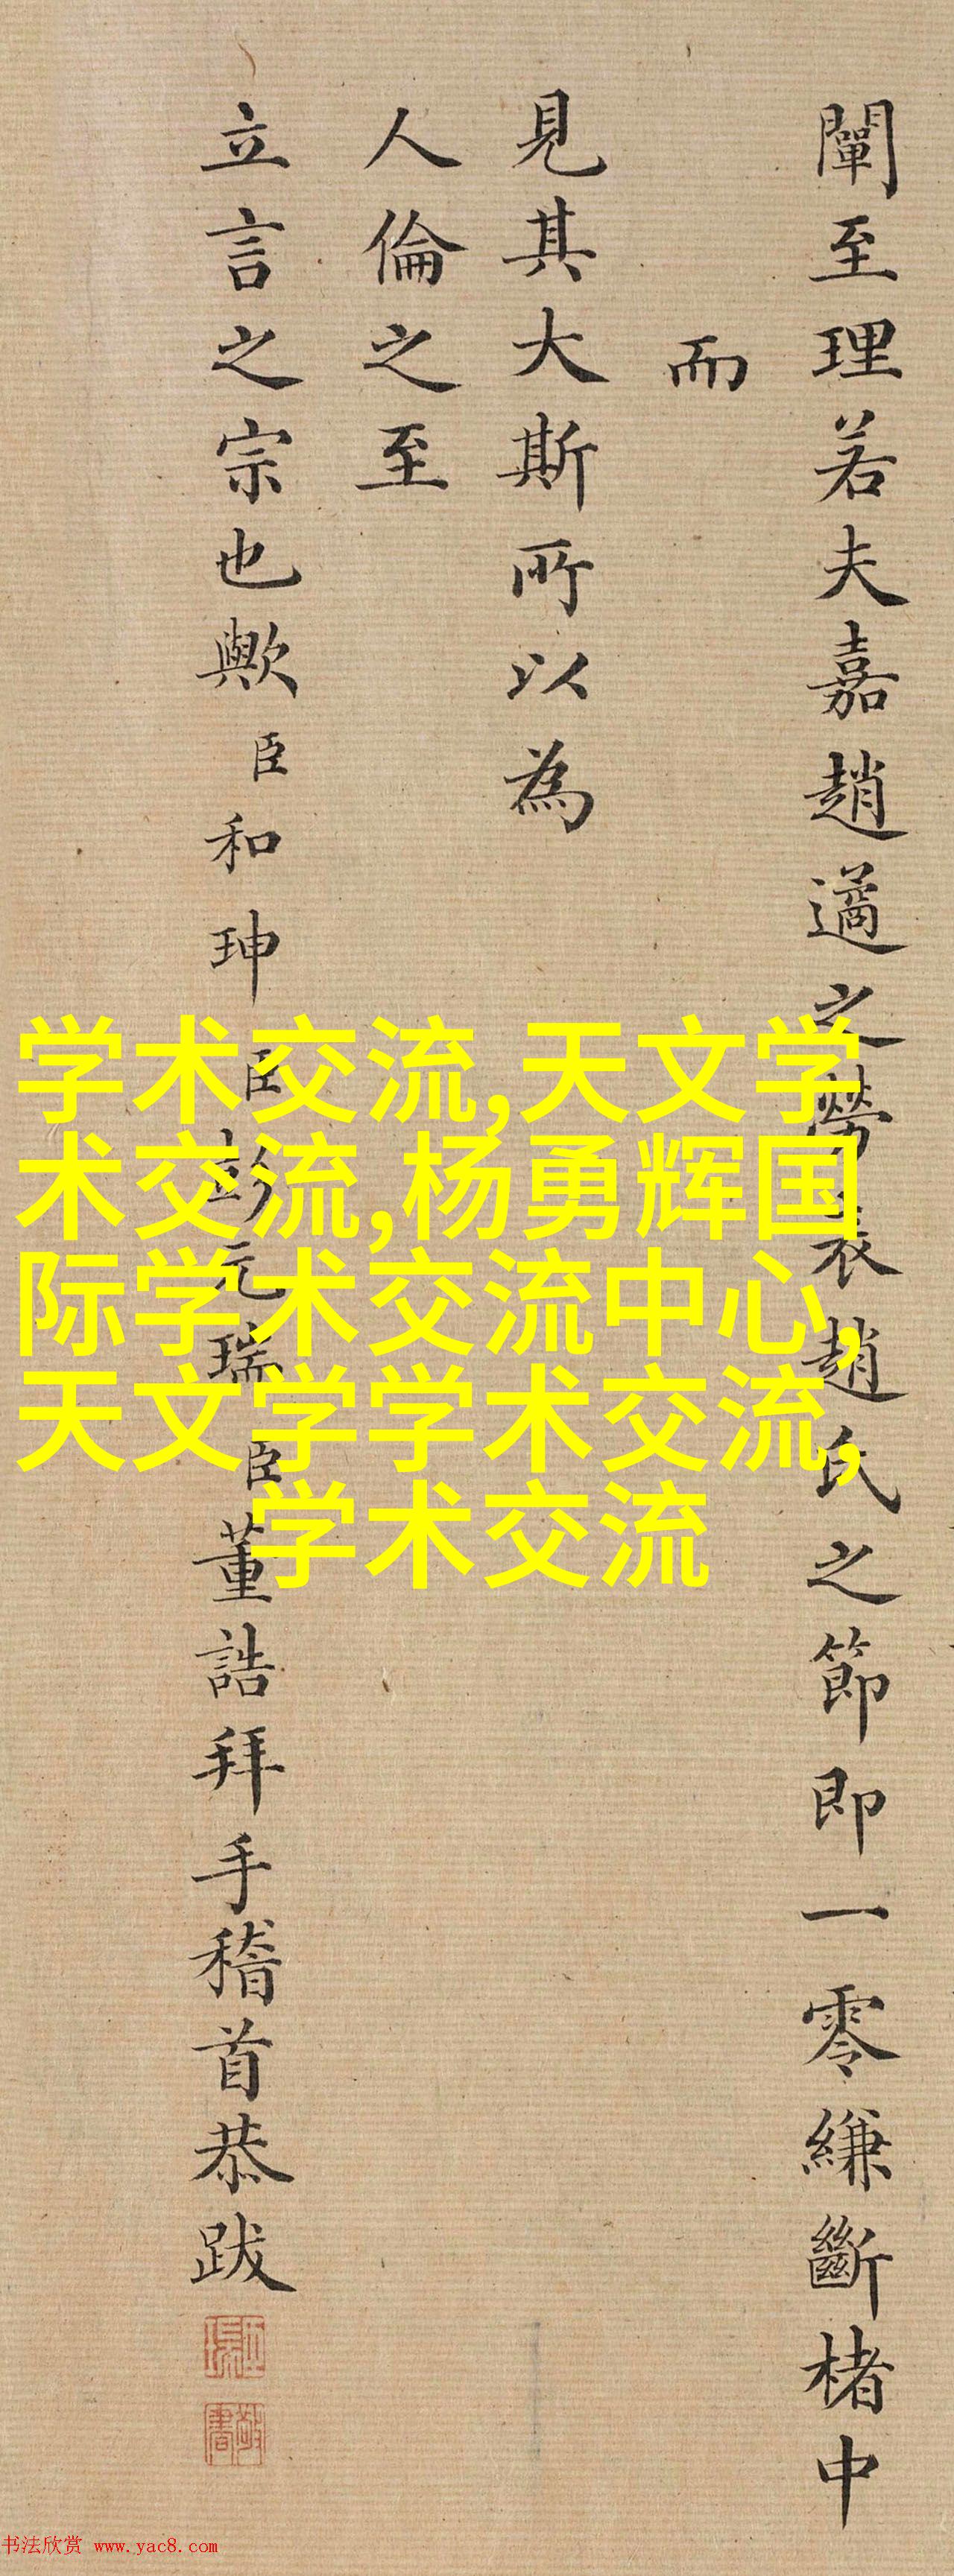 闡至理若夫嘉趙邁之勞表趙氏之節即一零縑斷楮中
而
見其大斯所以為
人倫之至
立言之宗也歟臣和珅臣彭元瑞臣董誥拜手稽首恭跋
学术交流,天文学
术交流,杨勇辉国
际学术交流中心,
天文学学术交流,
学术交流
书法欣赏 www.yac8.com